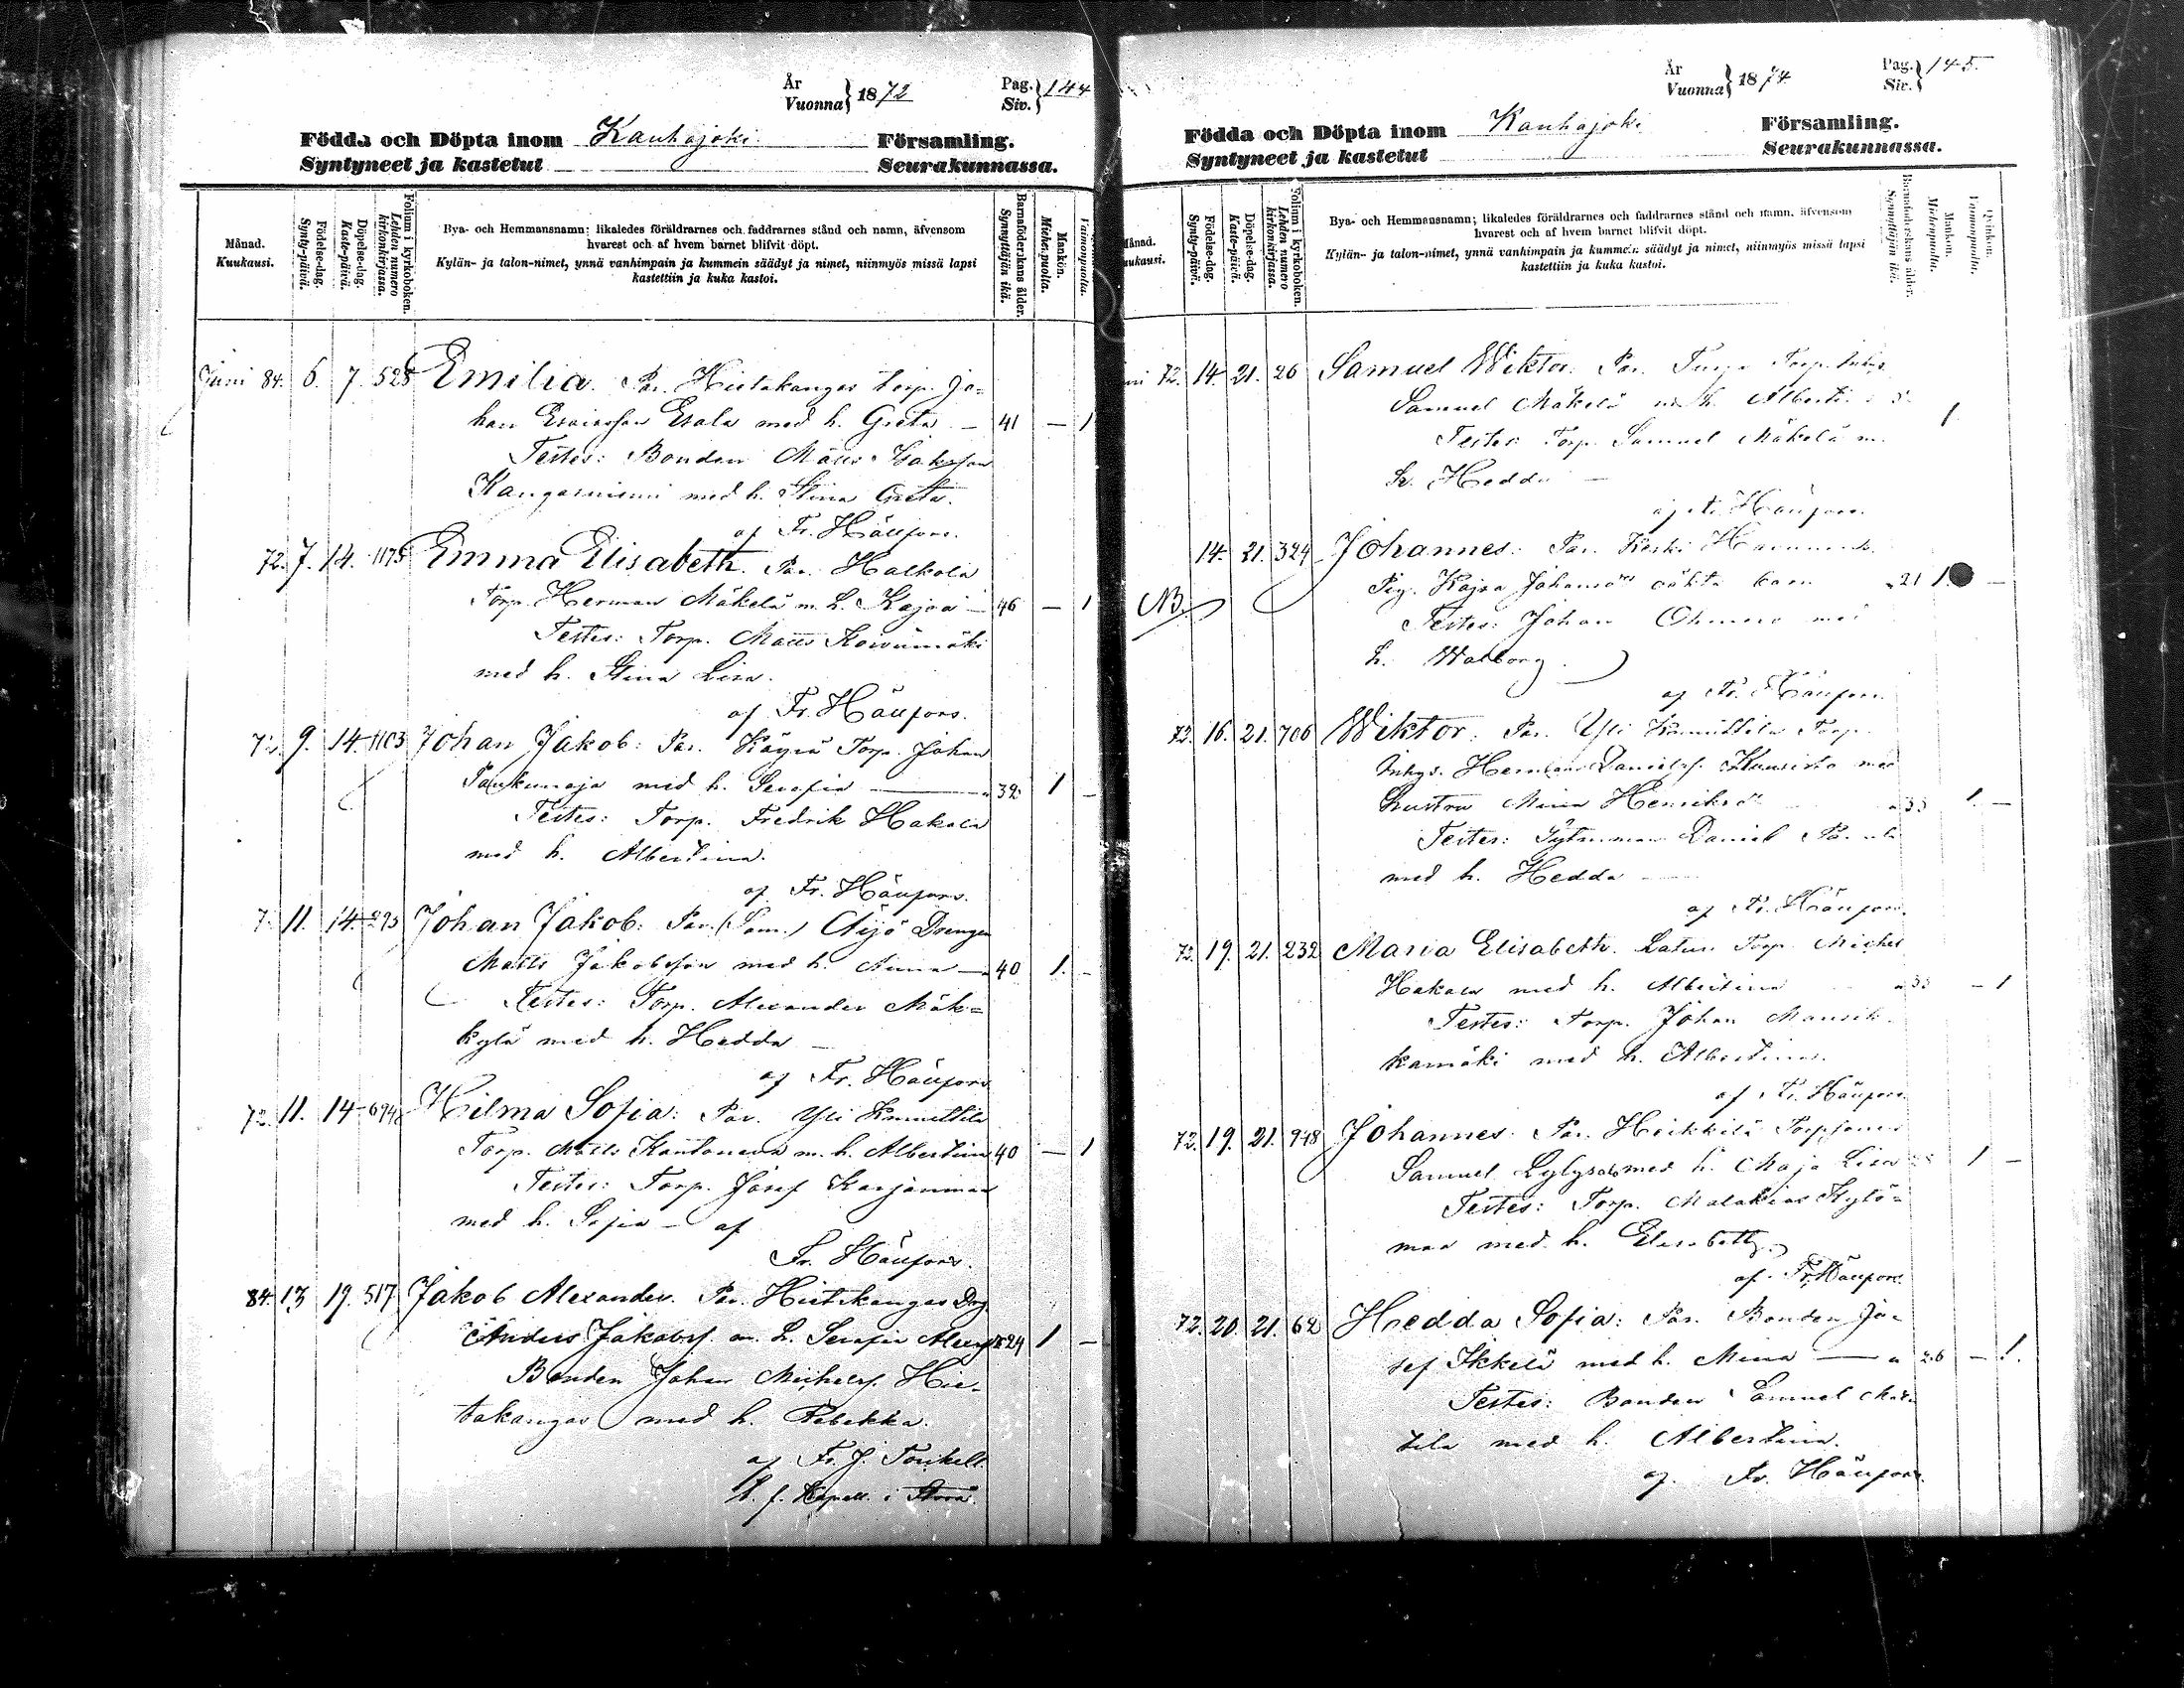 År
Vuonna} 1872
Pag.
Siv.} 144
Födda och Döpta inom Kauhajoki Församling.
Syntyneet ja kastetut Seurakunnassa.
Månad.
Kuukausi.
Födelse-dag.
Synty-päivä.
Döpelse-dag.
Kaste-päivä.
Folium i kyrkoboken.
Lehden numero kirkonkirjassa.
Bya- och Hemmansnamn; likaledes föräldrarnes och faddrarnes stånd och namn, äfvensom
hvarest och af hvem barnet blifvit döpt.
Kylän- ja talon-nimet, ynnä vanhimpain ja kummein säädyt ja nimet, niinmyös missä lapsi
kastettiin ja kuka kastoi.
Barnaföderskans ålder.
Synnyttäjän ikä.
Mankön.
Miehenpuolia.
Vaimonpuolia.
Juni 84. 6. 7. 528 Emilia. Par. Hietakangas Torp. Jo-
han Esaiasson Esala med h. Greta — 41 — 1
Testes: Bonden Matts Isaksson
Kangasniemi med h. Stina Greta.
af Fr. Häufors.
72. 7. 14. 1175 Emma Elisabeth. Par. Halkola
Torp. Herman Mäkelä m. h. Kajsa — 46 — 1
Testes: Torp. Matts Koivumäki
med h. Stina Lisa.
af Fr. Häufors.
72. 9. 14. 1103 Johan Jakob: Par. Käyrä Torp. Johan
med h. Serafia — 32 1 —
Testes: Torp. Fredrik Hakala
med h. Albertina.
af Fr. Häufors.
7. 11. 14. 293 Johan Jakob: Par. (Sam.) Äijö Drengen
Matts Jakobsson med h. Anna — 40 1. —
Testes: Torp. Alexander Mäk-
kylä med h. Hedda —
af Fr. Häufors
72. 11. 14 694 Hilma Sofia: Par. Yli Knuuttila
Torp. Matts Kantoneva m. h. Albertina 40 — 1
Testes: Torp. Josef Karjanmaa
med h. Sofia — af
Fr. Häufors.
84. 13 19. 517 Jakob Alexander. Par. Hietakangas Drg
Anders Jakobsf. m. h. Serafia 24 1 —
Bonden Johan Michelsf. Hie-
takangas med h. Rebekka.
af Fr. J. Torckell.
t. f. Kapell. i Storå.
År
Vuonna} 1874
Pag.
Siv.} 145.
Födda och Döpta inom Kauhajoki Församling.
Syntyneet ja kastetut Seurakunnassa.
Månad.
Kuukausi.
Födelse-dag.
Synty-päivä.
Döpelse-dag.
Kaste-päivä.
Folium i kyrkoboken.
Lehden numero kirkonkirjassa.
Bya- och Hemmansnamn; likaledes föräldrarnes och faddrarnes stånd och namn, äfvensom
hvarest och af hvem barnet blifvit döpt.
Kylän- ja talon-nimet, ynnä vanhimpain ja kummein säädyt ja nimet, niinmyös missä lapsi
kastettiin ja kuka kastoi.
Barnaföderskans ålder.
Synnyttäjän ikä.
Mankön.
Miehenpuolia.
Qvinkön.
Vaimonpuolia.
72. 14. 21. 26 Samuel Wiktor. Par. Torp.
Samuel Mäkelä m. h. 1
Testes: Torp. Samuel Mäkelä m.
h. Hedda —
af Fr. Häufors.
14. 21. 324 Johannes: Par. Keski
Pig. Kajsa Johansdr oäkta barn 21 1. —
NB. Testes: Johan med
h. Walborg.
af Fr. Häufors.
72. 16. 21. 706 Wiktor: Par. Yli Knuuttila Torp.
Inhys. Herman Danielsf. Kuusisto med
hustru Maria Henriksdr 33 1. —
Testes: Daniel
med h. Hedda
af Fr. Häufors.
72. 19. 21. 232 Maria Elisabeth. Torp. Michel
Hakala med h. Albertina — 1
Testes: Torp. Johan Mansik-
kamäki med h. Albertina.
af Fr. Häufors.
72. 19. 21. 948 Johannes: Par. Heikkilä
Samuel med h. Maja Lisa 1 —
Testes: Torp. Malakias Kytö-
maa med h. Elisabeth.
af Fr. Häufors.
72. 20. 21. 62 Hedda Sofia: Par. Bonden Jo-
sef Ikkelä med h. Mina — 26 — 1.
Testes: Bonden Samuel
tila med h. Albertina.
af. Fr. Häufors.